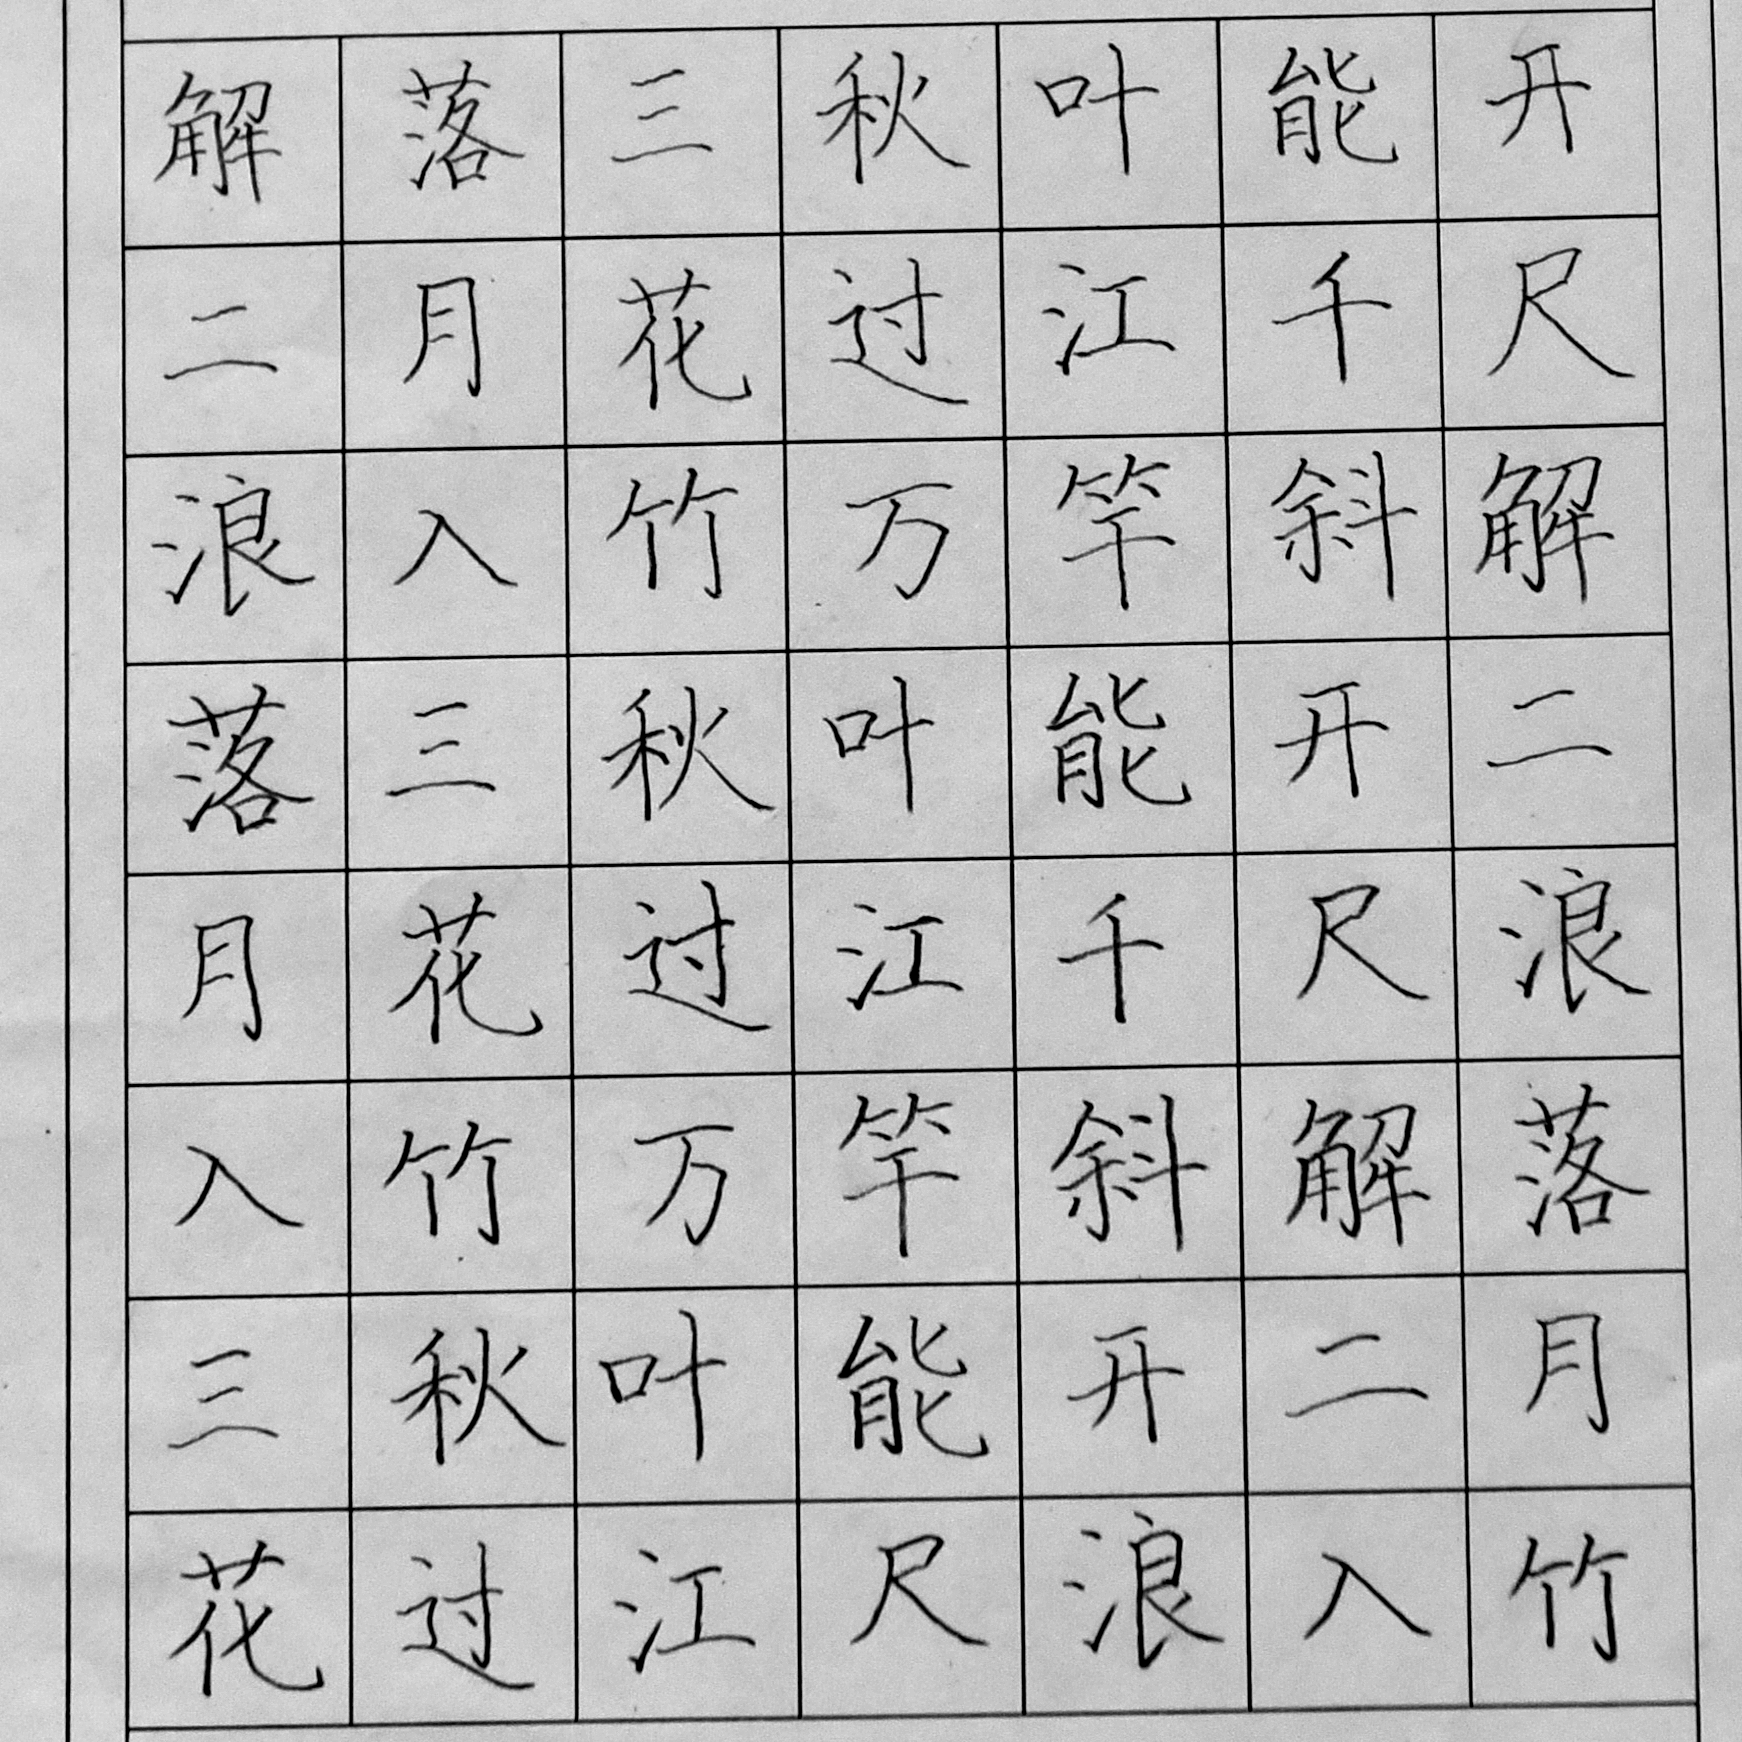 解落三秋叶能开
二月花过江千尺
浪入竹万竿斜解
落三秋叶能开二
月花过江千尺浪
入竹万竿斜解落
三秋叶能开二月
花过江尺浪入竹